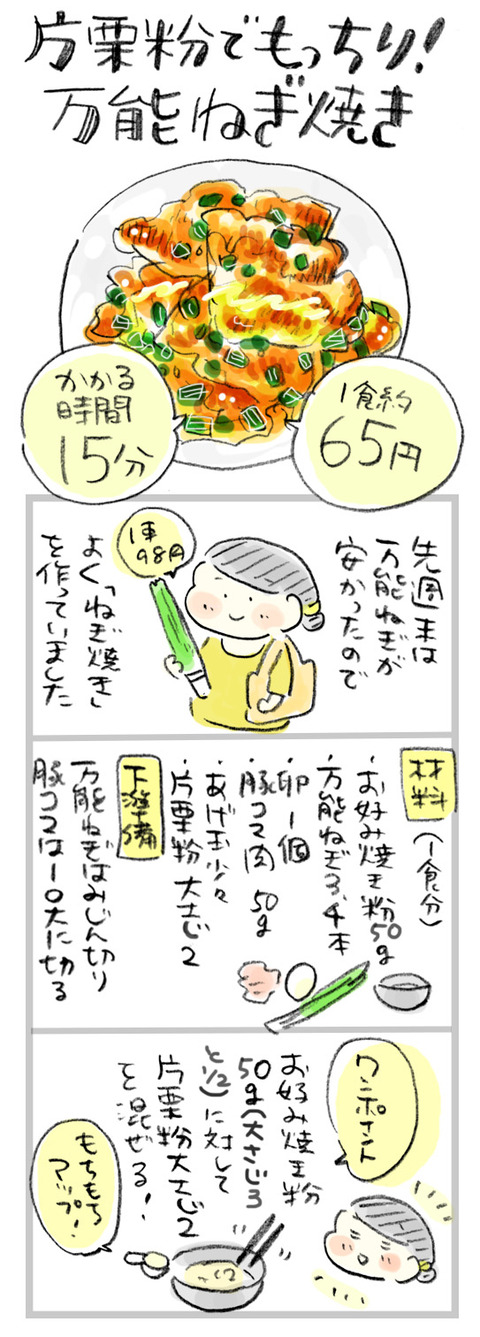 片栗粉でもっちり!
万能ねぎ焼き
かかる
時間
15分
1食約
65円
先週末は
万能ねぎが
安かったので
1束
98円
よく「ねぎ焼き」
を作っていました
材料
(1食分)
・お好み焼き粉50g
・万能ねぎ3、4本
・卵1個
・豚コマ肉 50g
・あげ玉少々
・片栗粉 大さじ2
下準備
万能ねぎはみじん切り
豚コマは一口大に切る
ワンポイント
お好み焼き粉
50g(大さじ3
と1/2)に対して
片栗粉大さじ2
を混ぜる!
もちもち
アップ!